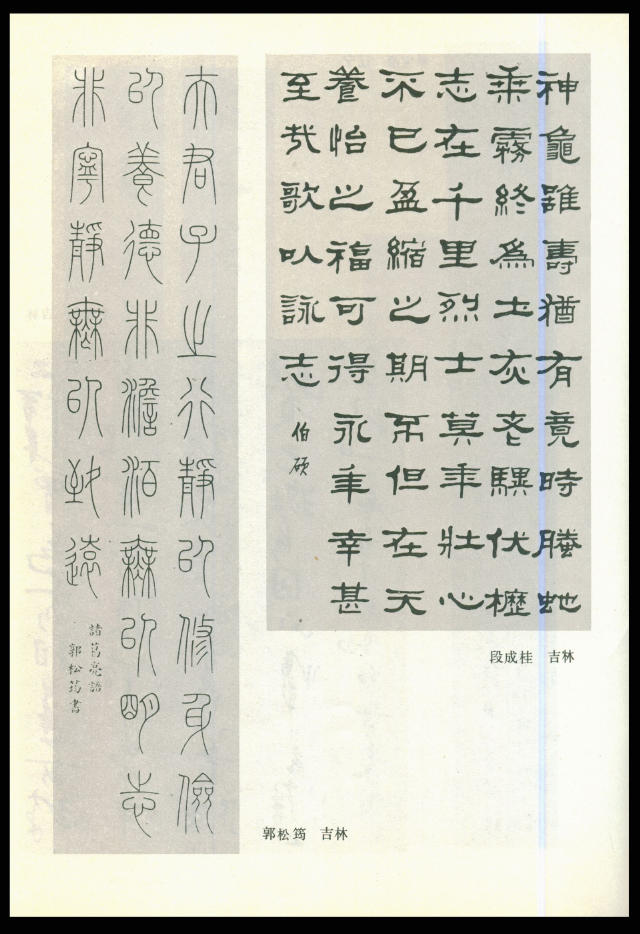 神龜雖壽猶有竟時螣虵
乘霧終為土灰老驥伏櫪
志在千里烈士莫年壯心
不已盈縮之期不但在天
養怡之福可得永年幸甚
至哉歌以詠志
伯碩
段成桂 吉林
夫君子之行靜以修身儉
以養德非澹泊無以明志
非寧靜無以致遠
諸葛亮語
郭松筠書
郭松筠 吉林